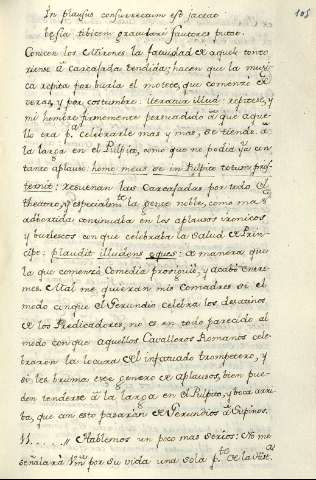 In plausus consurrectum est, jactac
bessa tibicen gratulari fautores putat.
Conocen los Mirones la fatuidad de aquel tonto
riense à carcajada tendida; hacen que la musi
ca repita por burla el motete, que comenzó de
veras, y por costumbre: iteratur illud: repitese, y
mi hombre firmemente persuadido à que aque
llo era pa. celebrarle mas y mas, se tiende à
la larga en el Pulpito, como que no podia ya con
tanto aplauso: homo meus se in Pulpito totum pros
ternit: resuenan las carcajadas por todo el
theatro, y especialmte. la gente noble, como mas
advertida continuaba en los aplausos ironicos
y burlescos con que celebraba la salud de Prin
cipe: plaudit illudens eques: de manera que
la que comenzó Comedia prosiguiò, y acabó entre
mes. Mal me quieran mis Comadres si el
modo con que el Gerundio celebra los desatinos
de los Predicadores, no es en todo parecido al
modo con que aquellos Cavalleros Romanos cele
braron la locura del infatuado trompetero, y
si les bruma este genero de aplausos, bien pue
den tenderse à la larga en el Pulpito, y boca arri
ba, que con esto pasarán de Gerundios à Supinos.
Hablemos un poco mas serios: No me
señalará Vm. por su vida una sola pte. de la
105